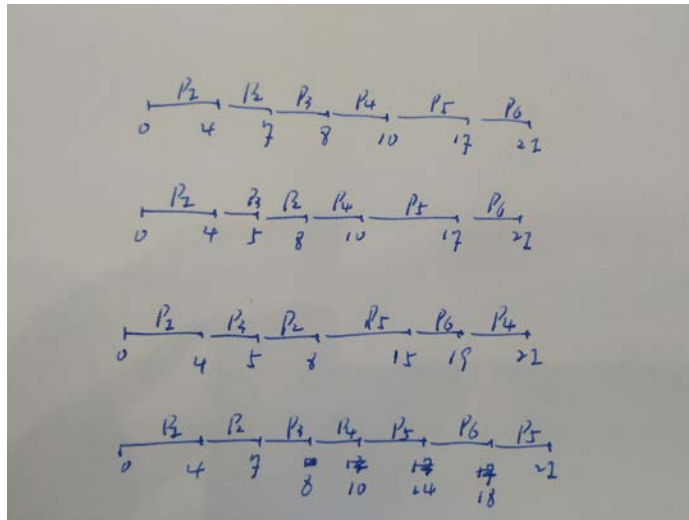 P1 P2 P3 P4 P5 P6
0 4 7 8 10 17 21
P1 P3 P2 P4 P5 P6
0 4 5 8 10 17 21
P1 P3 P2 P5 P6 P4
0 4 5 8 15 19 21
P1 P2 P3 P4 P5 P6 P5
0 4 7 8 10 14 18 21